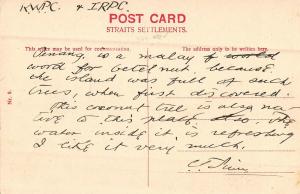 KWPC. & IRPC.
POST CARD
STRAITS SETTLEMENTS.
This space may be used for communication. The address only to be written here.
Penang is a malay world
word for betel nut, because
the island was full of such
trees, when first discovered.
This coconut tree is also na-
tive to this place. The
water inside it is refreshing
I like it very much.
No. 6.